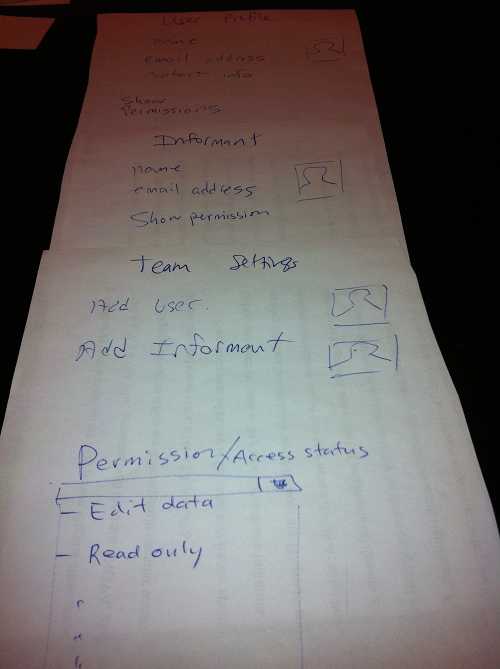 User Profile
name
email address
contact info
Show
Permissions
Informant
name
email address
Show permission
Team Settings
Add User.
Add Informant
Permission/Access status
- Edit data
- Read only